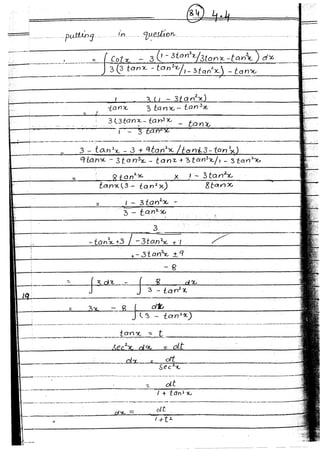 84 4.4
putting in question
= ∫ (cotx - 3 (1 - 3tan²x/3tanx - tan³x) dx
3 (3 tanx - tan³x/1 - 3tan²x) - tanx
1/tanx - 3(1 - 3tan²x)/3 tanx - tan³x
3(3tanx - tan³x)/1 - 3 tan²x - tanx
= 3 - tan²x - 3 + 9tan²x/tanx(3 - tan²x)
9tanx - 3tan³x - tanx + 3tan³x/1 - 3tan²x
= 8tan²x/tanx(3 - tan²x) × 1 - 3tan²x/8tanx
= 1 - 3tan²x
3 - tan²x
3
-tan²x + 3 / -3tan²x + 1
+ - 3tan²x ± 9
- 8
= ∫ 3dx - ∫ 8/3 - tan²x dx
19
= 3x - 8 ∫ dx/(3 - tan²x)
tanx = t
sec²x dx = dt
dx = dt/sec²x
= dt/1 + tan²x
dx = dt/1+t²